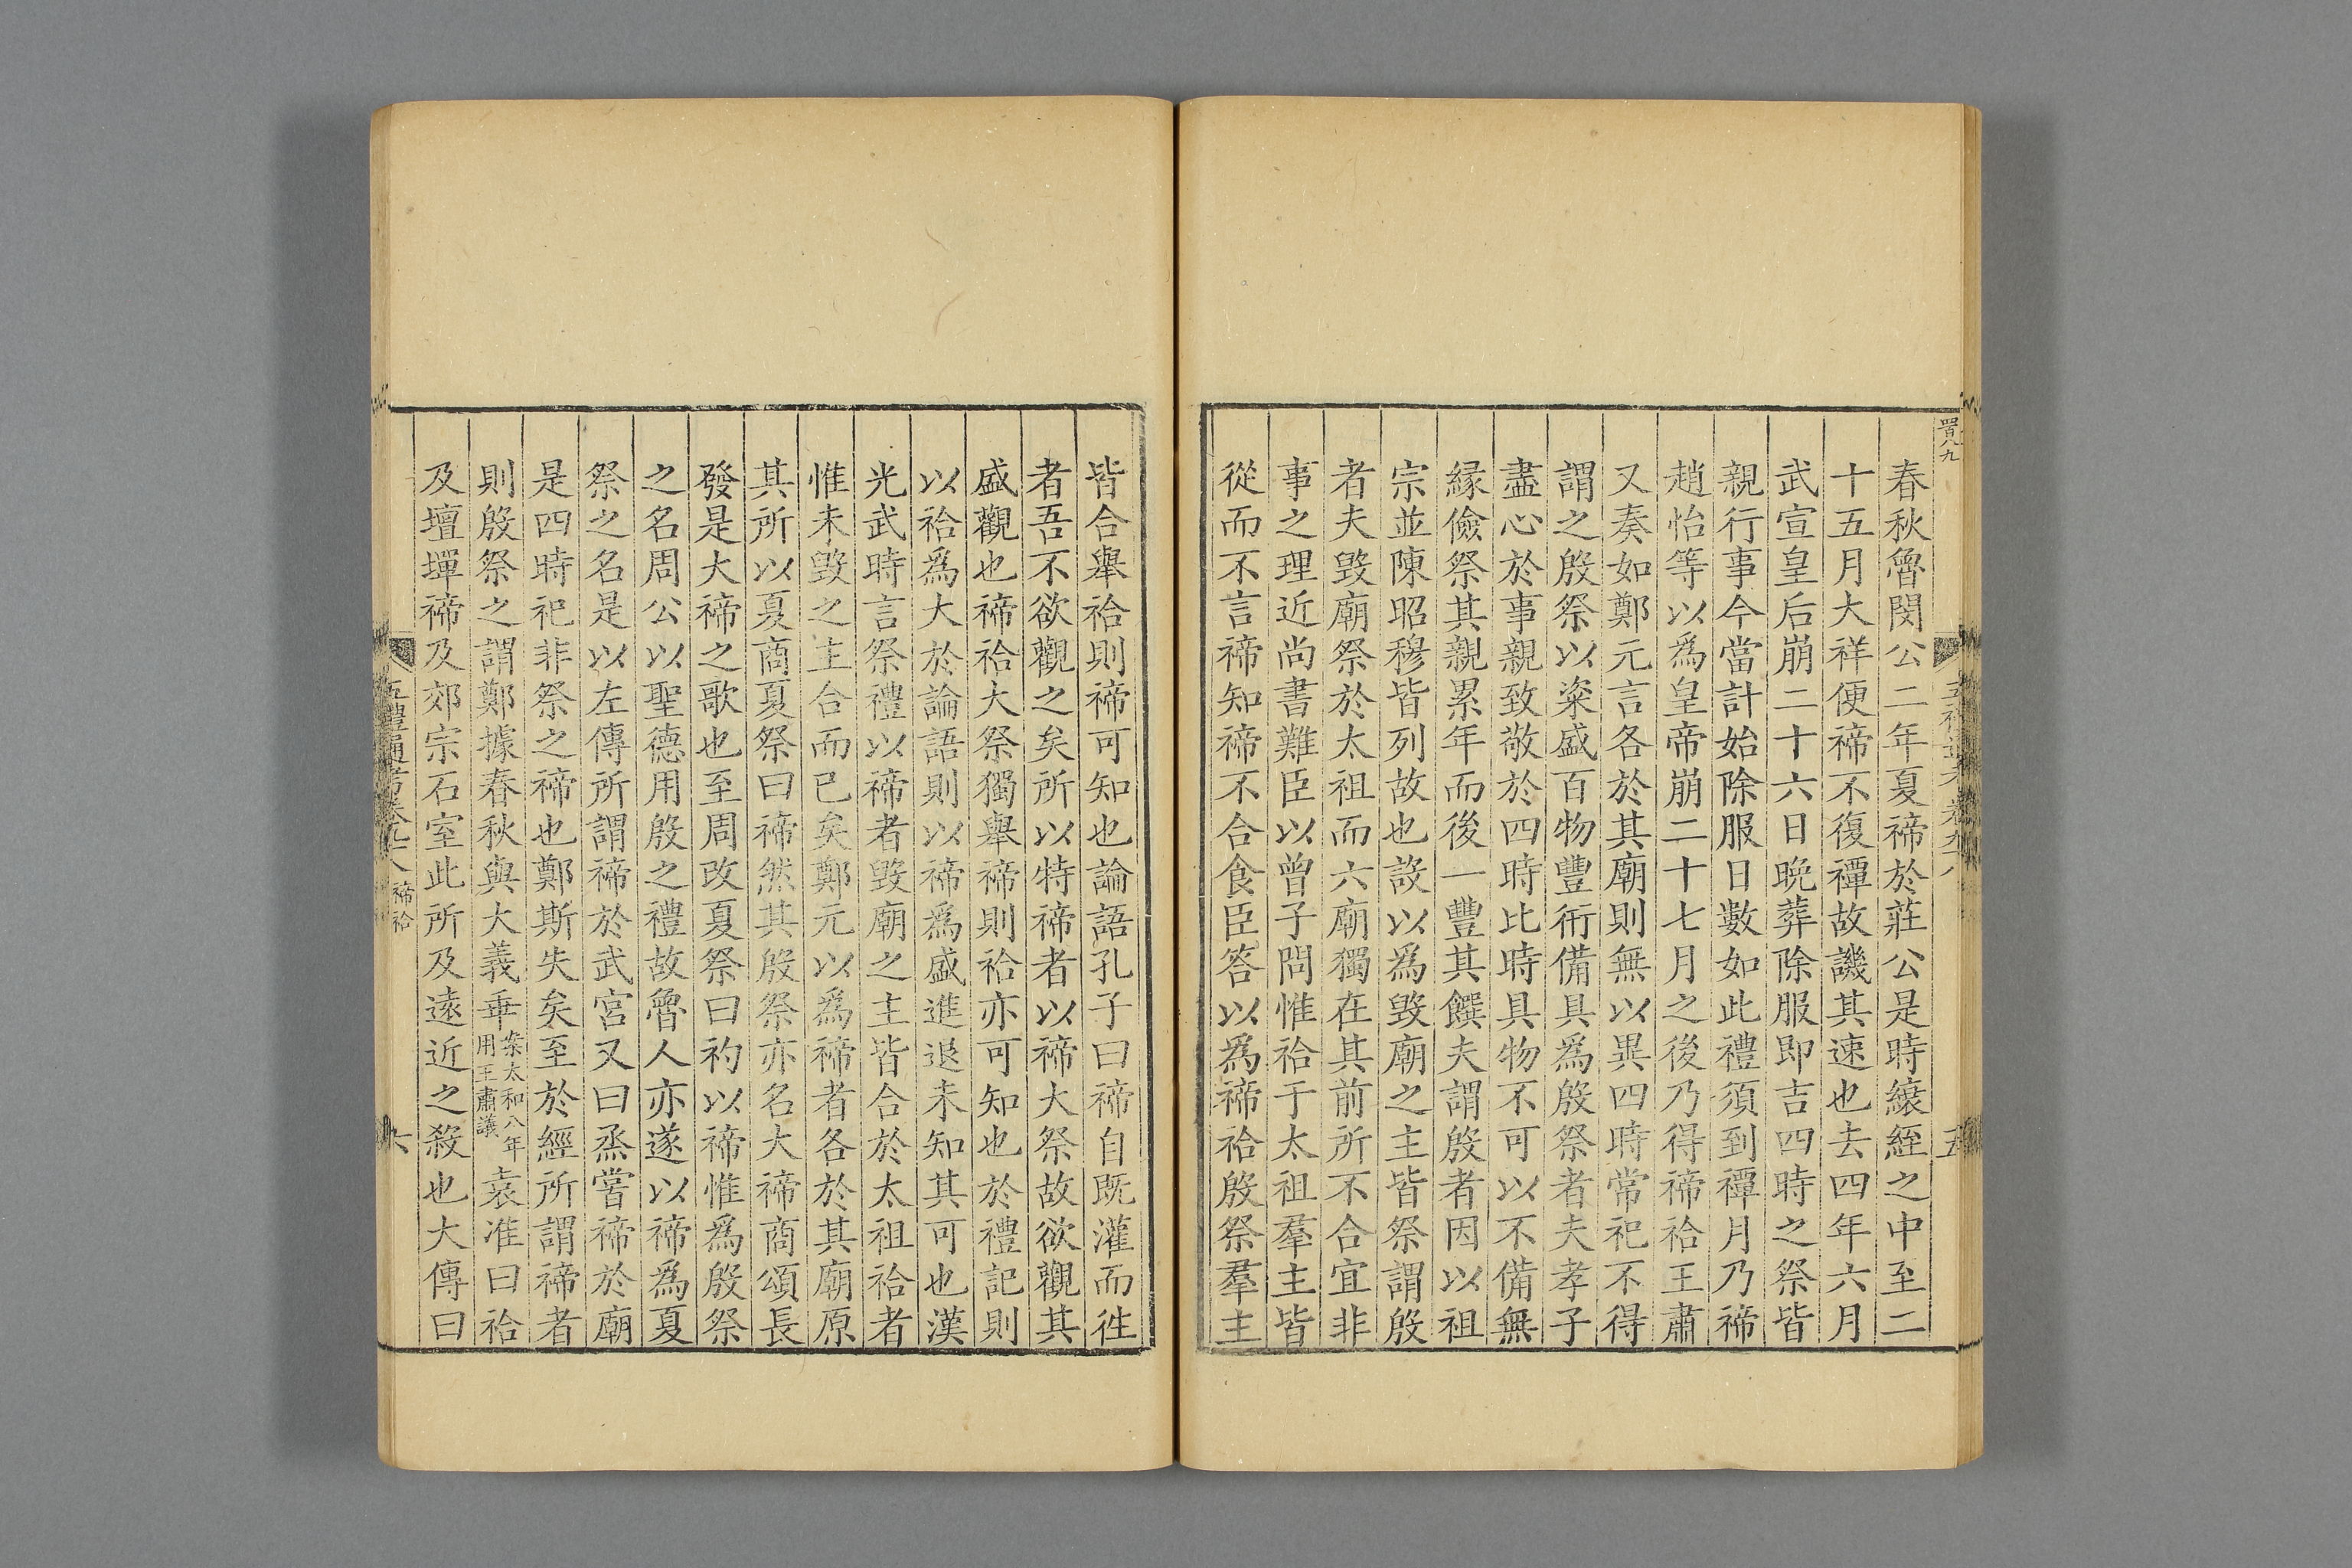 春秋魯閔公二年夏禘於莊公是時縗絰之中至二
十五月大祥便禘不復禫故譏其速也去四年六月
武宣皇后崩二十六日晚葬除服即吉四時之祭皆
親行事今當計始除服日數如此禮須到禫月乃禘
趙怡等以爲皇帝崩二十七月之後乃得禘祫王肅
又奏如鄭元言各於其廟則無以異四時常祀不得
謂之殷祭以粢盛百物豐衎備具爲殷祭者夫孝子
盡心於事親致敬於四時比時具物不可以不備無
緣儉祭其親累年而後一豐其饌夫謂殷者因以祖
宗並陳昭穆皆列故也設以爲毀廟之主皆祭謂殷
者夫毀廟祭於太祖而六廟獨在其前所不合宜非
事之理近尚書難臣以曾子問惟祫于太祖羣主皆
從而不言禘知禘不合食臣答以爲禘祫殷祭羣主
皆合舉祫則禘可知也論語孔子曰禘自既灌而徃
者吾不欲觀之矣所以特禘者以禘大祭故欲觀其
盛觀也禘祫大祭獨舉禘則祫亦可知也於禮記則
以祫爲大於論語則以禘爲盛進退未知其可也漢
光武時言祭禮以禘者毀廟之主皆合於太祖祫者
惟未毀之主合而已矣鄭元以爲禘者各於其廟原
其所以夏商夏祭曰禘然其殷祭亦名大禘商頌長
發是大禘之歌也至周改夏祭曰礿以禘惟爲殷祭
之名周公以聖德用殷之禮故魯人亦遂以禘爲夏
祭之名是以左傳所謂禘於武宮又曰烝嘗禘於廟
是四時祀非祭之禘也鄭斯失矣至於經所謂禘者
則殷祭之謂鄭據春秋與大義乖案太和八年用王肅議袁准曰祫
及壇墠禘及郊宗石室此所及遠近之殺也大傳曰
五禮通考卷九十八 禘祫 六